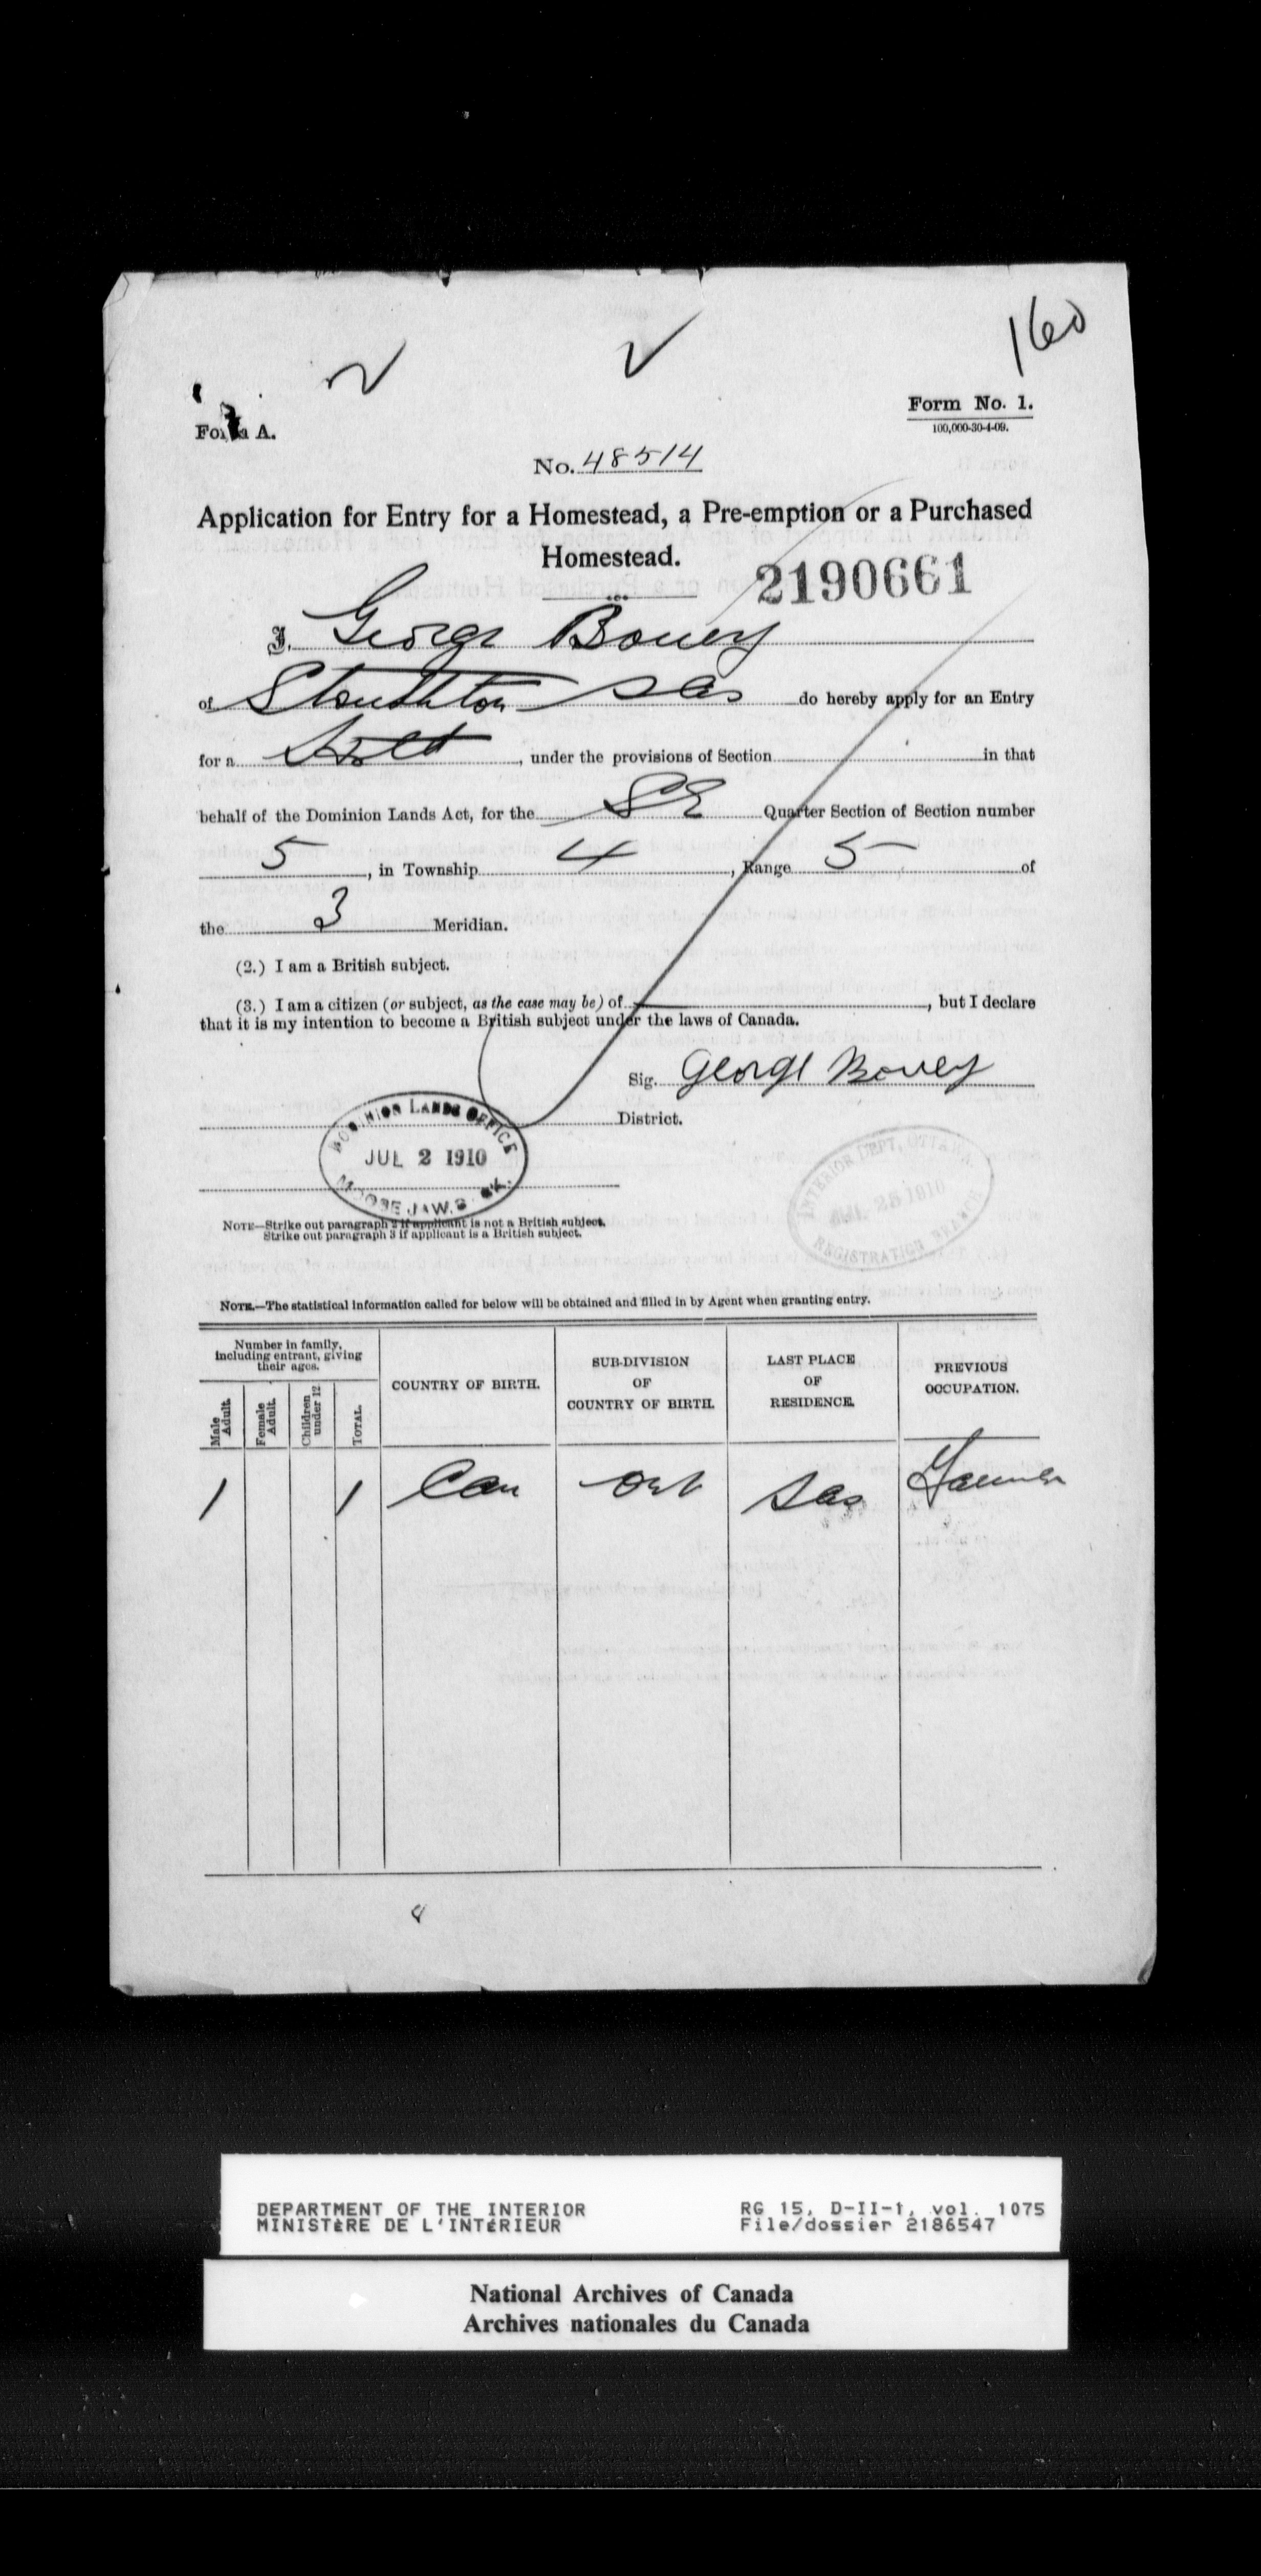 160
Form A.
Form No. 1.
100,000-30-4-09.
No. 48514
Application for Entry for a Homestead, a Pre-emption or a Purchased
Homestead.
2190661
I, George Bovey
of Stoughton Sas do hereby apply for an Entry
for a , under the provisions of Section in that
behalf of the Dominion Lands Act, for the SE Quarter Section of Section number
5, in Township 4, Range 5 of
the 3 Meridian.
(2.) I am a British subject.
(3.) I am a citizen (or subject, as the case may be) of , but I declare
that it is my intention to become a British subject under the laws of Canada.
Sig. George Bovey
District.
DOMINION LANDS OFFICE
JUL 2 1910
MOOSE JAW, SASK.
INTERIOR DEPT, OTTAWA
25 1910
REGISTRATION BRANCH
NOTE—Strike out paragraph 2 if applicant is not a British subject.
Strike out paragraph 3 if applicant is a British subject.
NOTE.—The statistical information called for below will be obtained and filled in by Agent when granting entry.
Number in family, including entrant, giving their ages.
Male Adult.
Female Adult.
Children under 12
TOTAL.
COUNTRY OF BIRTH.
SUB-DIVISION OF COUNTRY OF BIRTH.
LAST PLACE OF RESIDENCE.
PREVIOUS OCCUPATION.
1 1 Can Ont Sas Farmer
DEPARTMENT OF THE INTERIOR
MINISTÈRE DE L'INTÉRIEUR
RG 15, D-II-1, vol. 1075
File/dossier 2186547
National Archives of Canada
Archives nationales du Canada